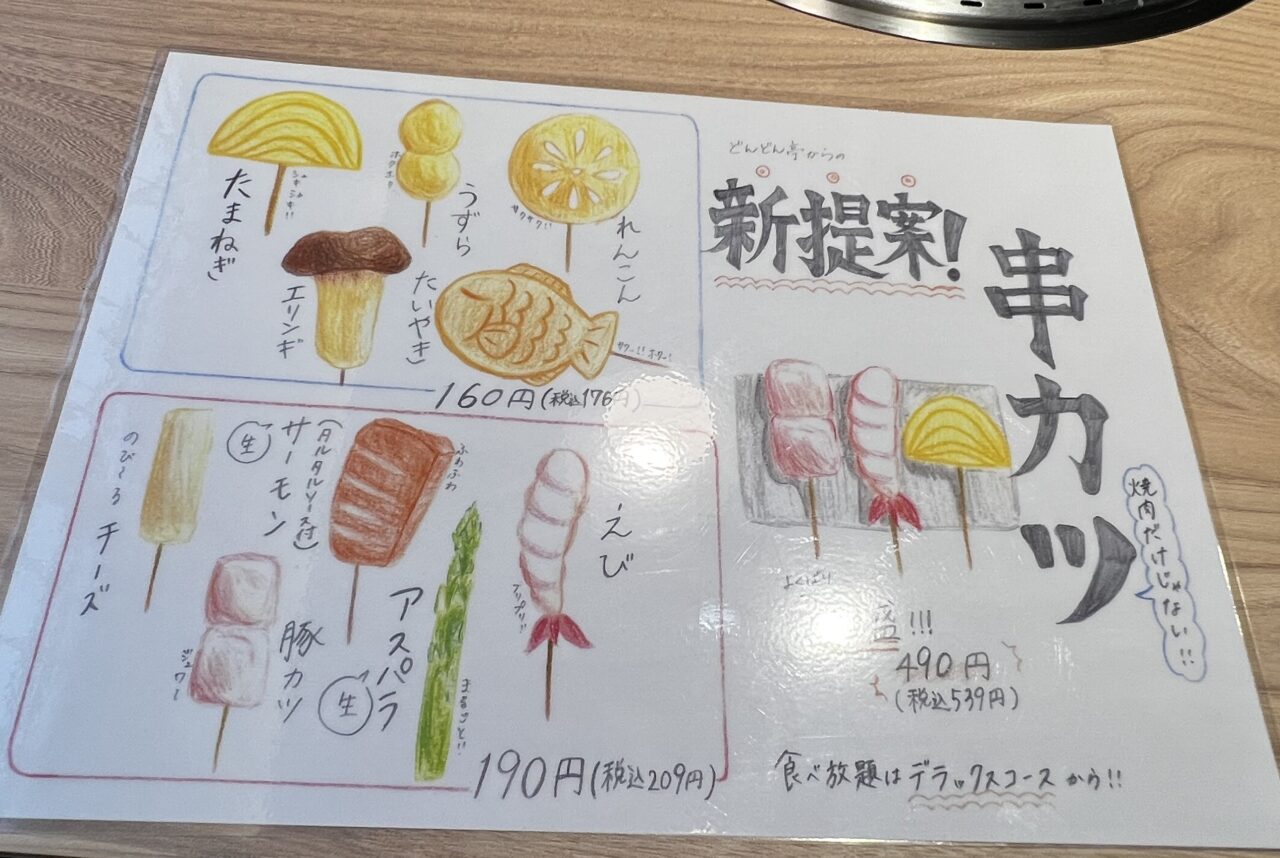 どんどん亭からの
新提案!
串カツ
焼肉だけじゃない!!
よくばり
盛!!!
490円
(税込539円)
食べ放題はデラックスコースから!!
れんこん
サクサク!!
うずら
ホクホク
たまねぎ
シャキシャキ!!
たいやき
エリンギ
160円(税込176円)
えび
プリプリ!!
アスパラ
生
まるごと!!
サーモン
(タルタルソース付)
生
ふわふわ
豚カツ
ジュワ〜
のび〜る
チーズ
190円(税込209円)